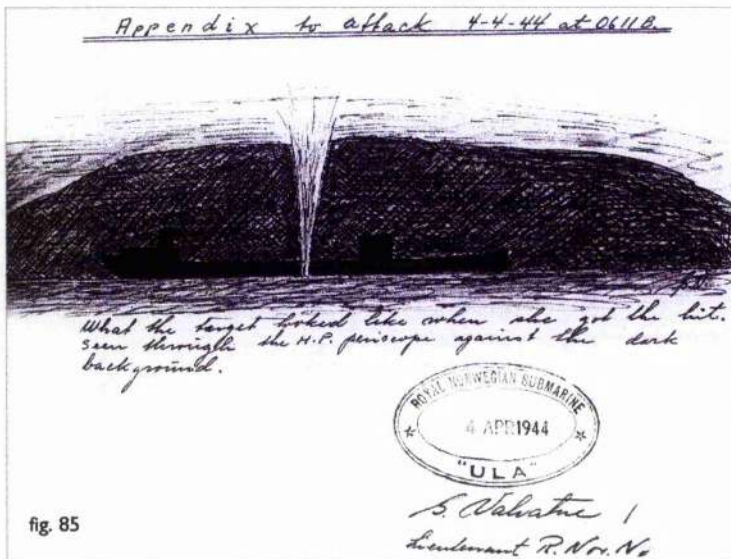 Appendix to attack 4-4-44 at 0611B.
What the target looked like when she got the hit.
seen through the H.P. periscope against the dark
background.
ROYAL NORWEGIAN SUBMARINE
4 APR 1944
"ULA"
S. Valvatne
Lieutenant R. Nor. N.
fig. 85